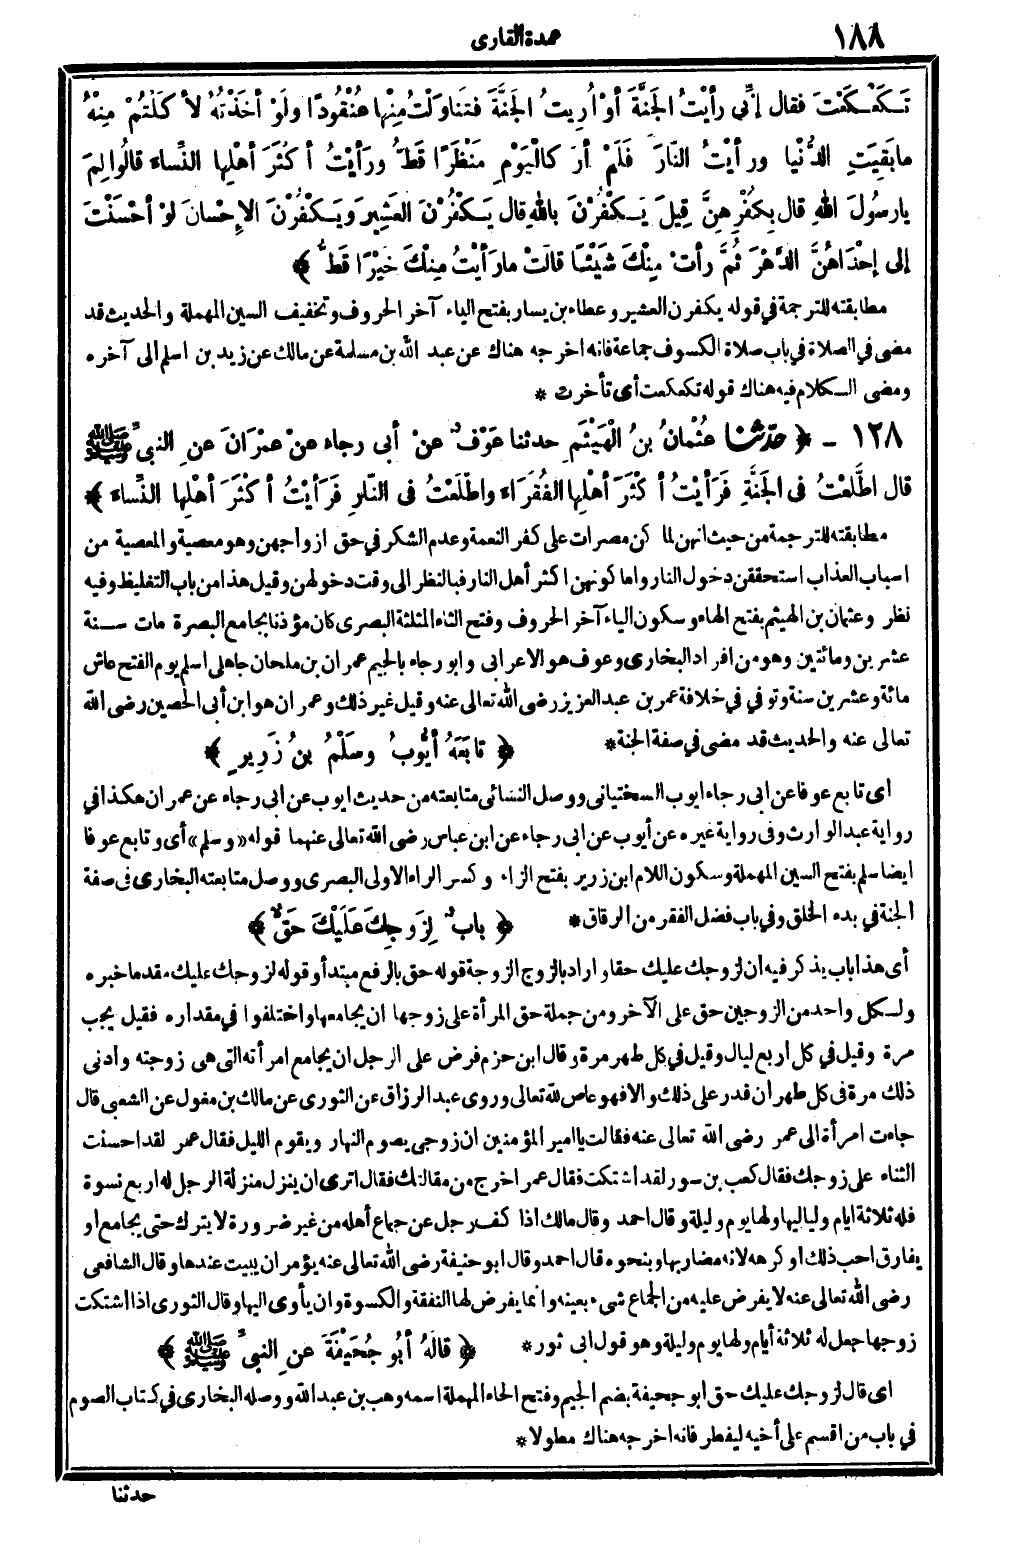 ١٨٨
عمدة القارى
تَكَعْكَعْتَ فقال إنِّى رأيْتُ الجَنَّةَ أوْ أُرِيتُ الجَنَّةَ فتَناوَلْتُ مِنْها عُنْقُودًا ولَوْ أخَذْتُهُ لأ كَلْتُمْ مِنْهُ
مابَقِيَتِ الدُّنْيا ورأيْتُ النَّارَ فَلَمْ أرَ كالْيَوْمِ مَنْظَرًا قَطُّ ورَأيْتُ أ كْثَرَ أهْلِها النِّساءَ قالُوا لِمَ
يارسُولَ اللهِ قال بِكُفْرِهِنَّ قِيلَ يَكْفُرْنَ بالله قال يَكْفُرْنَ العَشِيرَ ويَكْفُرْنَ الإِحْسانَ لوْ أحْسَنْتَ
إلى إحْدَاهُنَّ الدَّهْرَ ثُمَّ رأتْ مِنْكَ شَيْئًا قالَتْ مارَأيْتُ مِنْكَ خَيْرًا قَطُّ ﴾
مطابقته للترجمة في قوله يكفرن العشير وعطاء بن يسار بفتح الياء آخر الحروف وتخفيف السين المهملة والحديث قد
مضى في الصلاة في باب صلاة الكسوف جماعة فانه اخرجه هناك عن عبد الله بن مسلمة عن مالك عن زيد بن اسلم الى آخره
ومضى الكلام فيه هناك قوله تكعكعت أى تأخرت *
١٢٨ - ﴿ حدّثنا عُثْمانُ بنُ الْهَيْثَمِ حدثنا عَوْفٌ عنْ أبى رجاء عنْ عِمْرَانَ عنِ النبىِّ ﷺ
قال اطَّلَعْتُ فى الجَنَّةِ فَرَأيْتُ أ كْثَرَ أهْلِها الفُقَرَاءَ واطَّلَعْتُ فى النَّارِ فَرَأيْتُ أ كْثَرَ أهْلِها النِّساءَ ﴾
مطابقته للترجمة من حيث انهن لما كن مصرات على كفر النعمة وعدم الشكر في حق ازواجهن وهو معصية والمعصية من
اسباب العذاب استحققن دخول النار واما كونهن اكثر أهل النار فبالنظر الى وقت دخولهن وقيل هذا من باب التغليظ وفيه
نظر وعثمان بن الهيثم بفتح الهاء وسكون الياء آخر الحروف وفتح الثاء المثلثة البصرى كان مؤذنا بجامع البصرة مات سنة
عشرين ومائتين وهو من افراد البخارى وعوف هو الاعرابى وابو رجاء بالجيم عمران بن ملحان جاهلى اسلم يوم الفتح عاش
مائة وعشرين سنة وتوفي في خلافة عمر بن عبد العزيز رضى الله تعالى عنه وقيل غير ذلك وعمران هو ابن أبى الحصين رضى الله
تعالى عنه والحديث قد مضى في صفة الجنة * ﴿ تابَعَهُ أيُّوبُ وسَلْمُ بنُ زَرِيرٍ ﴾
اى تابع عوفا عن ابى رجاء ايوب السختيانى ووصل النسائى متابعته من حديث ايوب عن ابى رجاء عن عمران هكذا في
رواية عبد الوارث وفى رواية غيره عن أيوب عن ابى رجاء عن ابن عباس رضى الله تعالى عنهما قوله «وسلم» أى وتابع عوفا
ايضا سلم بفتح السين المهملة وسكون اللام ابن زرير بفتح الزاء وكسر الراء الاولى البصرى ووصل متابعته البخارى فى صفة
الجنة في بدء الخلق وفي باب فضل الفقر من الرقاق * ﴿ بابٌ لِزَوجِكَ عَلَيْكَ حَقٌّ ﴾
أى هذا باب يذكر فيه ان لزوجك عليك حقا واراد بالزوج الزوجة قوله حق بالرفع مبتدأ وقوله لزوجك عليك مقدما خبره
ولكل واحد من الزوجين حق على الآخر ومن جملة حق المرأة على زوجها ان يجامعها واختلفوا في مقداره فقيل يجب
مرة وقيل في كل اربع ليال وقيل في كل طهر مرة وقال ابن حزم فرض على الرجل ان يجامع امرأته التى هى زوجته وادنى
ذلك مرة فى كل طهر ان قدر على ذلك والا فهو عاص لله تعالى وروى عبد الرزاق عن الثورى عن مالك بن مغول عن الشعبى قال
جاءت امرأة الى عمر رضى الله تعالى عنه فقالت يا امير المؤمنين ان زوجى يصوم النهار ويقوم الليل فقال عمر لقد احسنت
الثناء على زوجك فقال كعب بن سور لقد اشتكت فقال عمر اخرج من مقالتك فقال اترى ان ينزل منزلة الرجل له اربع نسوة
فله ثلاثة ايام ولياليها ولها يوم وليلة وقال احمد وقال مالك اذا كف رجل عن جماع أهله من غير ضرورة لا يترك حتى يجامع او
يفارق احب ذلك او كرهه لانه مضار بها وبنحوه قال احمد وقال ابو حنيفة رضى الله تعالى عنه يؤمر ان يبيت عندها وقال الشافعى
رضى الله تعالى عنه لا يفرض عليه من الجماع شىء بعينه وانما يفرض لها النفقة والكسوة وان يأوى اليها وقال الثورى اذا اشتكت
زوجها جعل له ثلاثة أيام ولها يوم وليلة وهو قول ابى ثور * ﴿ قالَهُ أبُو جُحَيْفَةَ عنِ النبىِّ ﷺ ﴾
اى قال لزوجك عليك حق ابو جحيفة بضم الجيم وفتح الحاء المهملة اسمه وهب بن عبد الله ووصله البخارى في كتاب الصوم
في باب من اقسم على أخيه ليفطر فانه اخرجه هناك مطولا *
حدثنا